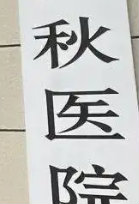 秋医院